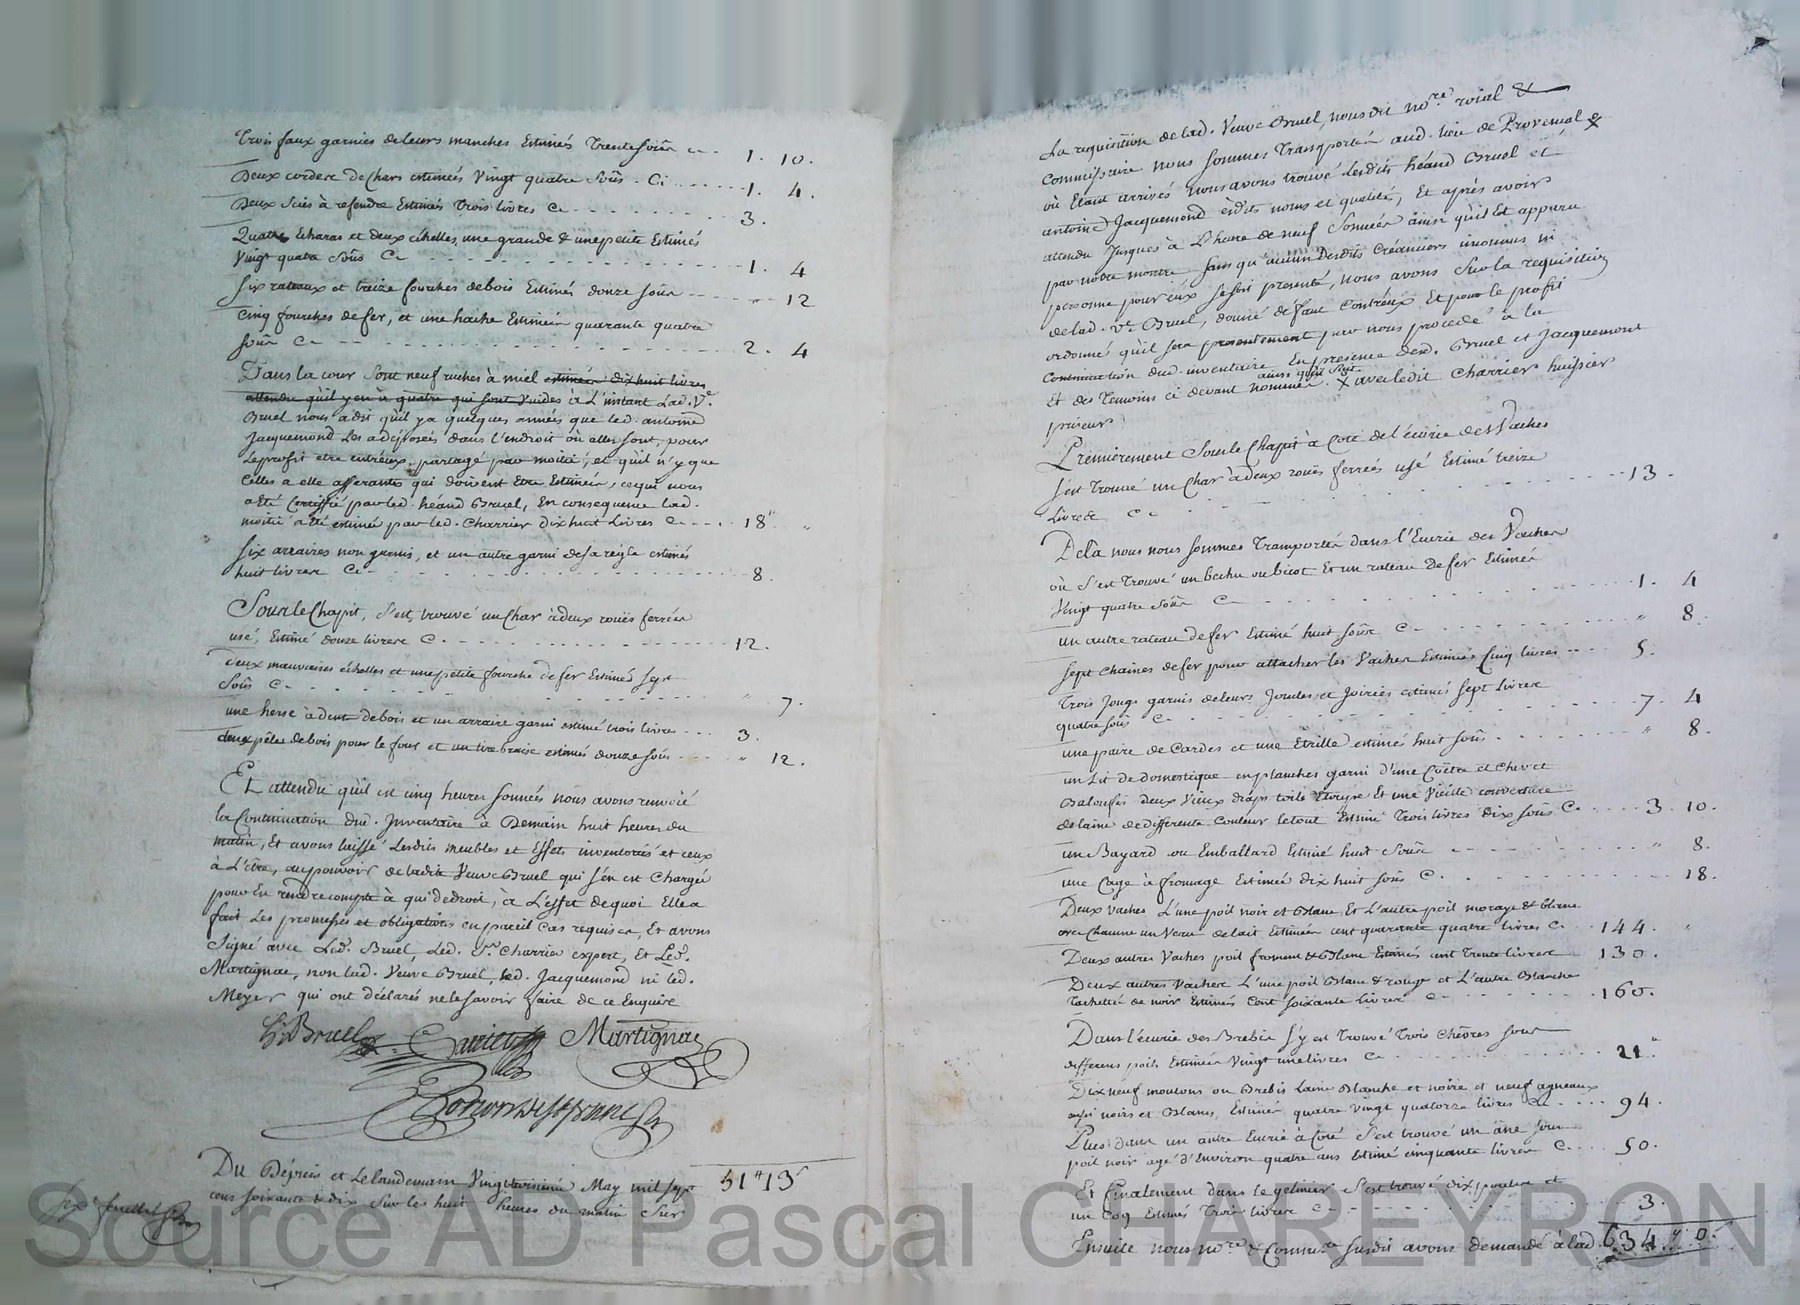 Trois faux garnies de leurs manches Estimés Trente sous c - - 1. 10.
Deux cordere de Chars estimées Vingt quatre Sols. Ci - - - - - 1. 4.
Deux Scies à refendre Estimés Trois livres C. - - - - - - - 3.
Quatre Echaras et deux échelles, une grande & une petite Estimés
Vingt quatre Sols C - - - - - - - - - - 1. 4
Six rateaux et treize fourches de bois Estimés douze sous - - - " 12
Cinq fourches de fer, et une hache Estimées quarante quatre
sous C - - - - - - - - - - 2. 4
Dans la cour Sont neuf ruches à miel estimées dix huit livres
attendu qu'il y en a quatre qui sont Vuides à L'instant Lad. Ve
Bruel nous a dit qu'il y a quelques années que led. antoine
Jacquemond Les a déposées dans l'endroit où elles sont, pour
Le profit etre entréeux partagé par moitié, et qu'il n'y que
Celles a elle afferantes qui doivent Etre Estimées, ce qui nous
a Eté Certiffié par led. héand Bruel, En consequence lad.
moitié a Eté estimée par led. Charrier Dix huit Livres C - - - 18 " "
Six arraires non garnis, et un autre garni de sa reigle estimés
huit livres C - - - - - - - - - - 8.
Sous le Chapit, s'est trouvé un Char à deux rouës ferrées
usé, Estimé douze livres C - - - - - - - - 12.
deux mauvaises échelles et une petite fourche de fer Estimés Sept
Sols C - - - - - - - - - - " 7.
une herse à dent de bois et un arraire garni estimé trois livres - - - 3.
deux pêles de bois pour le four et un tire braise estimés douze sous - - - " 12.
Et attendu qu'il est cinq heures sonnées nous avons renvoié
la Continuation dud. Inventaire à Demain huit heures du
matin, Et avons laissé Lesdits meubles et Effets inventoriés et ceux
à L'être, au pouvoir de ladite Veuve Bruel qui s'en est Chargée
pour En rendre compte à qui de droit, à L'effet de quoi Elle a
fait Les promesses et obligations en pareil Cas requises, Et avons
Signé avec Led. Bruel, Led. Sr Charrier expert, Et Led.
Martignac, non lad. Veuve Bruel, led. Jacquemond ni led.
Meyer qui ont déclarés ne le savoir faire de ce Enquire
Bruel Martignac
Du Dépuis et Le landemain Vingt troisieme May mil sept 51 " 13
cens soixante & dix Sur les huit heures du matin Sur
La requisition de lad. Veuve Bruel, nous dit nore roial &
Commissaire nous sommes Transportés aud. lieu de Provenial &
où Etant arrivés nous avons trouvé lesdits héand Bruel et
antoine Jacquemond èsdits noms et qualités, Et après avoir
attendu Jusques à L'heure de neuf Sonnées ainsi qu'il Est apparu
par notre montre sans qu'aucun desdits Créanciers inconnus ni
personne pour eux se soit presenté, nous avons Sur la requisition
de lad. Ve Bruel, donné defaut Contréux Et pour le profit
ordonné qu'il sera presentement par nous procedé à la
Continuation dud. inventaire En presence desd. Bruel et Jacquemont
ainsi qu'il suit
Et des Temoins ci devant nommés. X avec ledit Charrier huissier
priseur
Premierement Sous le Chapit à Coté de l'écurie des Vaches
s'est Trouvé un Char à deux rouës ferrées usé Estimé treize - - 13.
Livres C - - - - - -
De là nous nous sommes Transportés dans l'Ecurie des Vaches
où s'est Trouvé un bechu ou bicot Et un rateau de fer Estimés
Vingt quatre Sous C - - - - - - - - - 1. 4
un autre rateau de fer Estimé huit sous C - - - - - - - " 8.
Sept Chaines de fer pour attacher les Vaches Estimées Cinq livres - - - 5.
Trois Jougs garnis de leurs Joucles et Joiriés estimés sept Livres
quatre sous C - - - - - - - - - 7. 4
une paire de Cardes et une Etrille estimés huit sous - - - - - - " 8.
un Lit de domestique en planches garni d'une Coëtre et Chevet
Baloufes deux Vieux draps toile Etoupe Et une Vieille couverture
de laine de differente Couleur le tout Estimé Trois livres Dix sous C. - - - 3. 10.
un Bayard ou Emballard Estimé huit Sous - - - - - - - " 8.
une Cage à fromage Estimée dix huit sous C. - - - - - - - 18.
Deux vaches L'une poil noir et Blanc, Et L'autre poil moraye & blanc
avec Chacune un Veau de lait Estimées cent quarante quatre livres C. - - 144. "
Deux autres Vaches poil froment & Blanc Estimés cent Trente livres - - 130.
Deux autres Vaches L'une poil Blanc & rouge et L'autre Blanche
Tachetée de noir Estimés Cent soixante livres C - - - - - 160.
Dans l'écurie des Brebis s'y est Trouvé Trois Chèvres sous
differens poils Estimées Vingt une livres C - - - - - - - 21. "
Dix neuf moutons ou Brebis Laine Blanche et noire et neuf agneaux
aussi noirs et Blancs, Estimés quatre vingt quatorze livres C - - - 94.
Plus dans un autre Ecurie à Coté S'est trouvé un âne sous
poil noir agé d'Environ quatre ans Estimé cinquante livres C - - - 50.
Et finalement dans le gelinier S'est trouvé dix poules et
un Coq Estimés Trois livres C - - - - - - 3.
Ensuite nous nore & Commre susdit avons demandé à lad. 634 " 0.
Source AD Pascal CHAREYRON